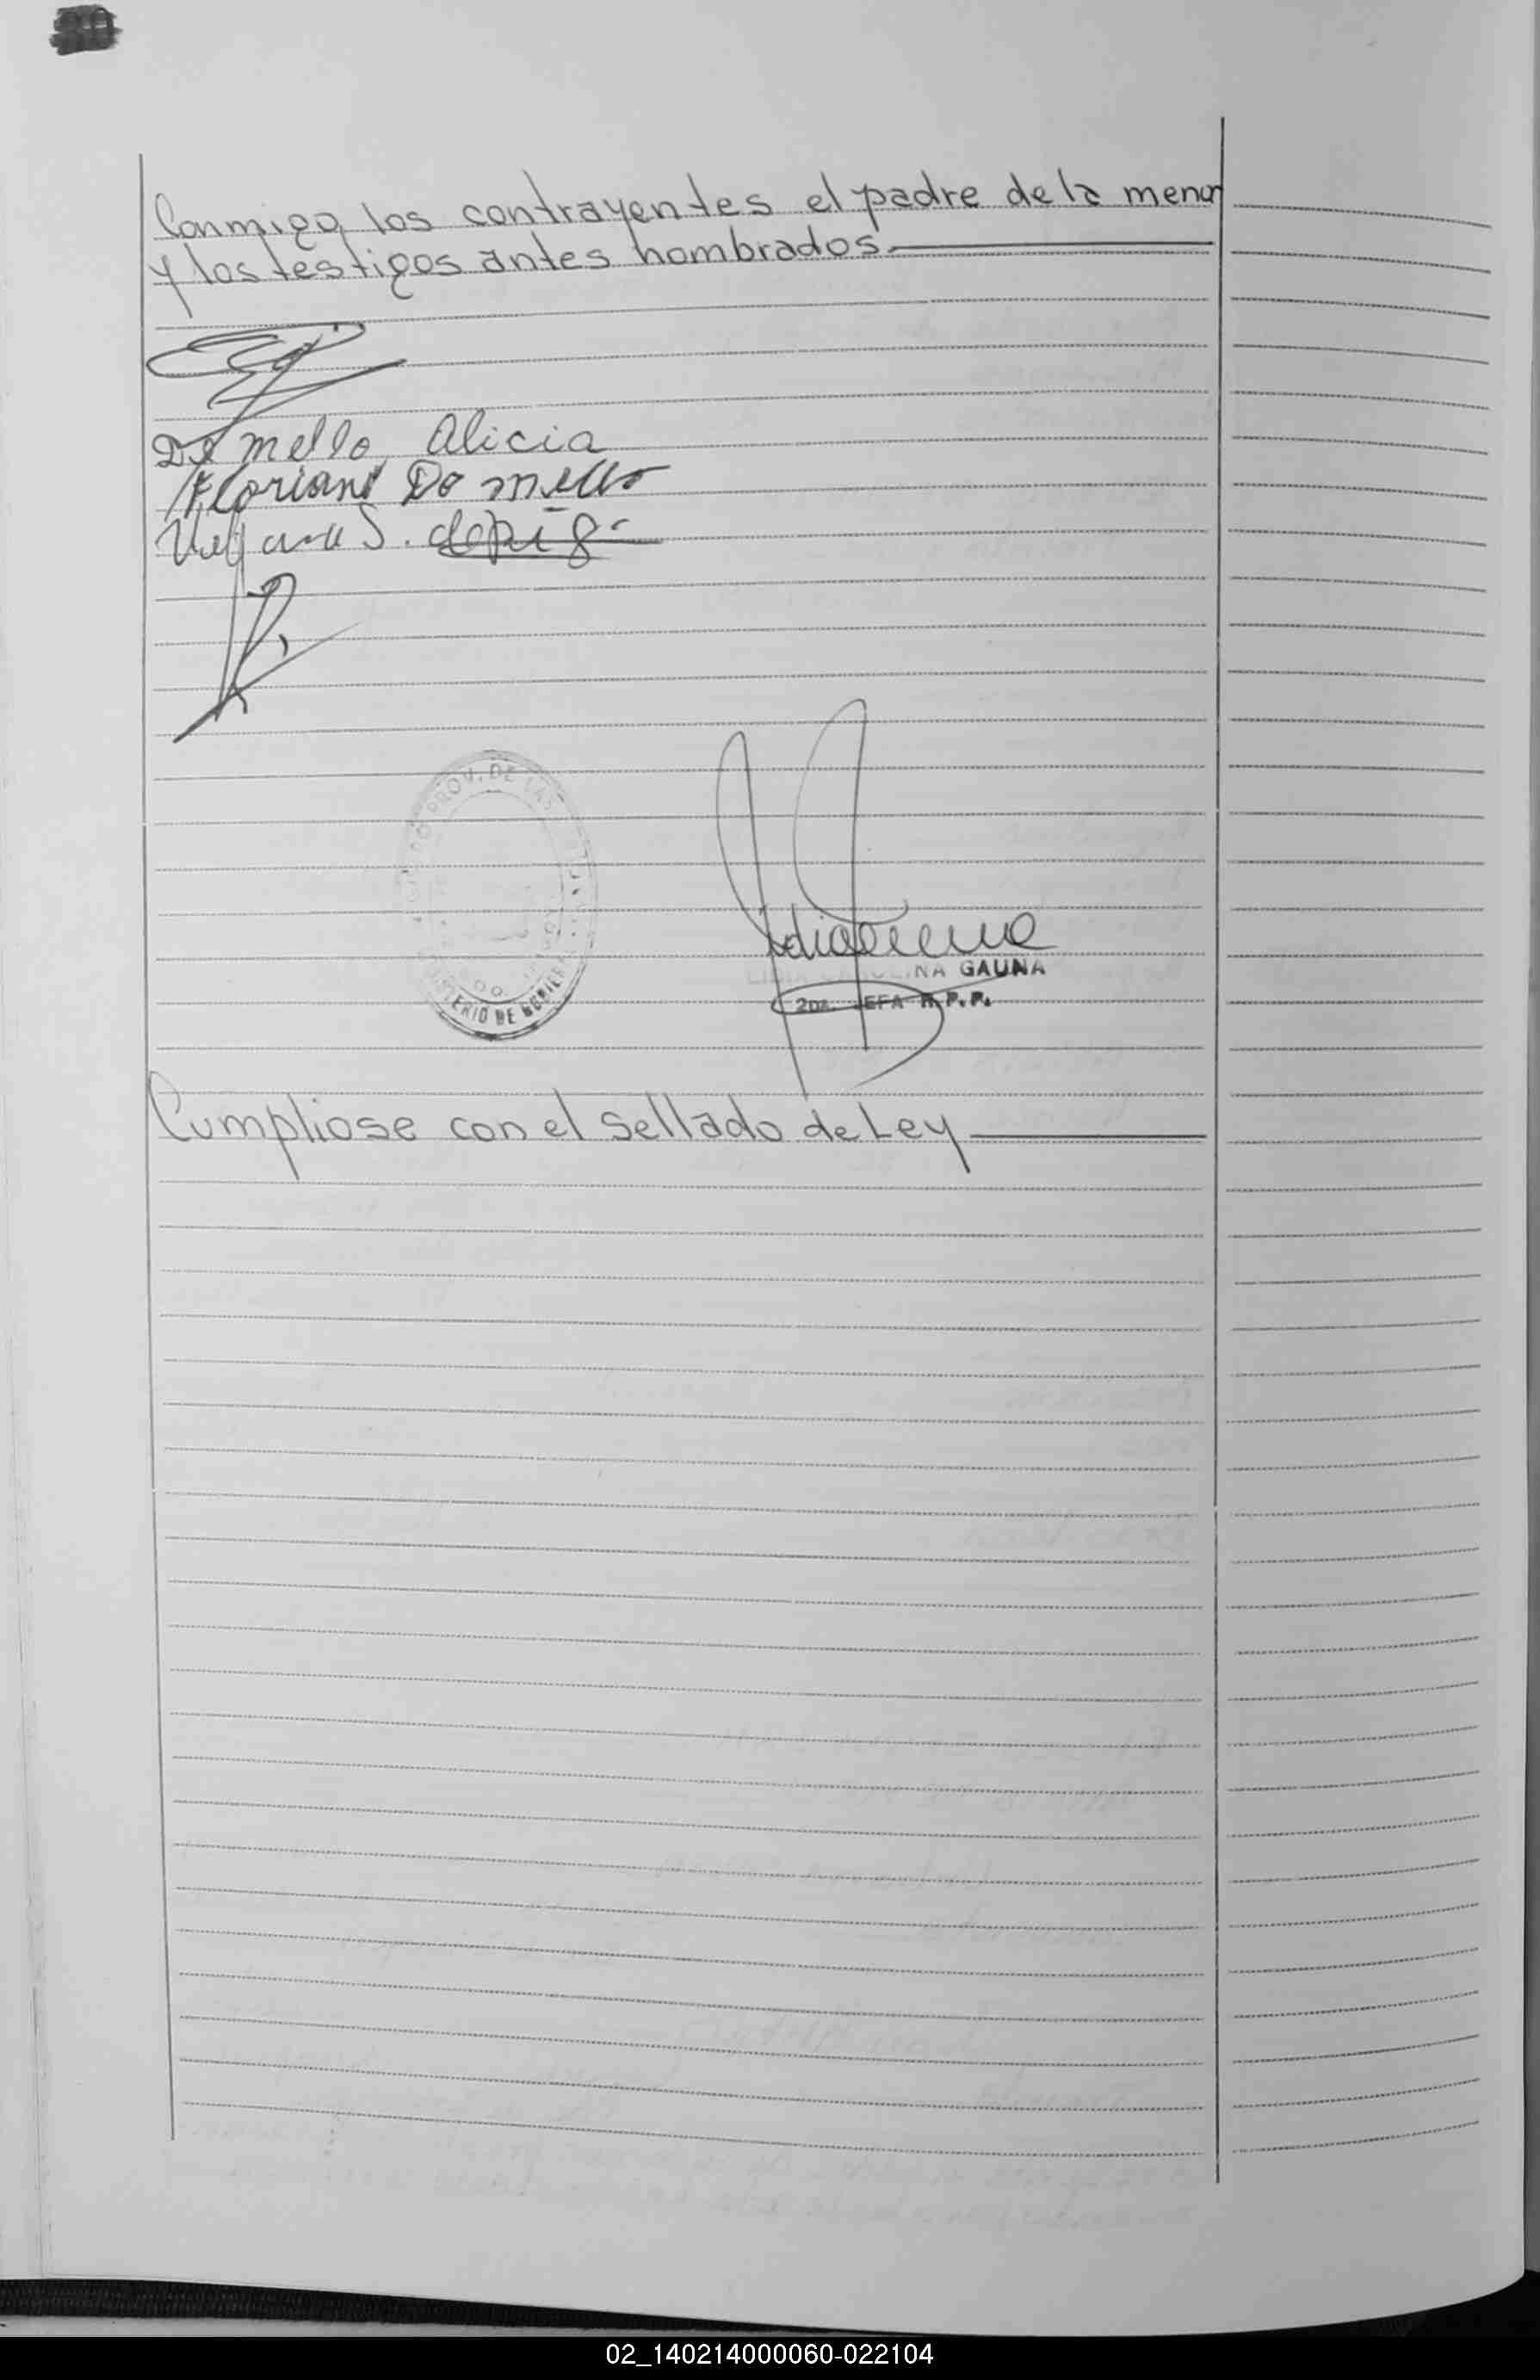 Conmigo, los contrayentes el padre de la menor
y los testigos antes nombrados
De mello, Alicia
Floriano De mello
S.
PROV. DE LAS
MINISTERIO DE GOBIERNO
GAUNA
2DA. JEFA R.P.P.
Cumpliose con el sellado de Ley
02_140214000060-022104